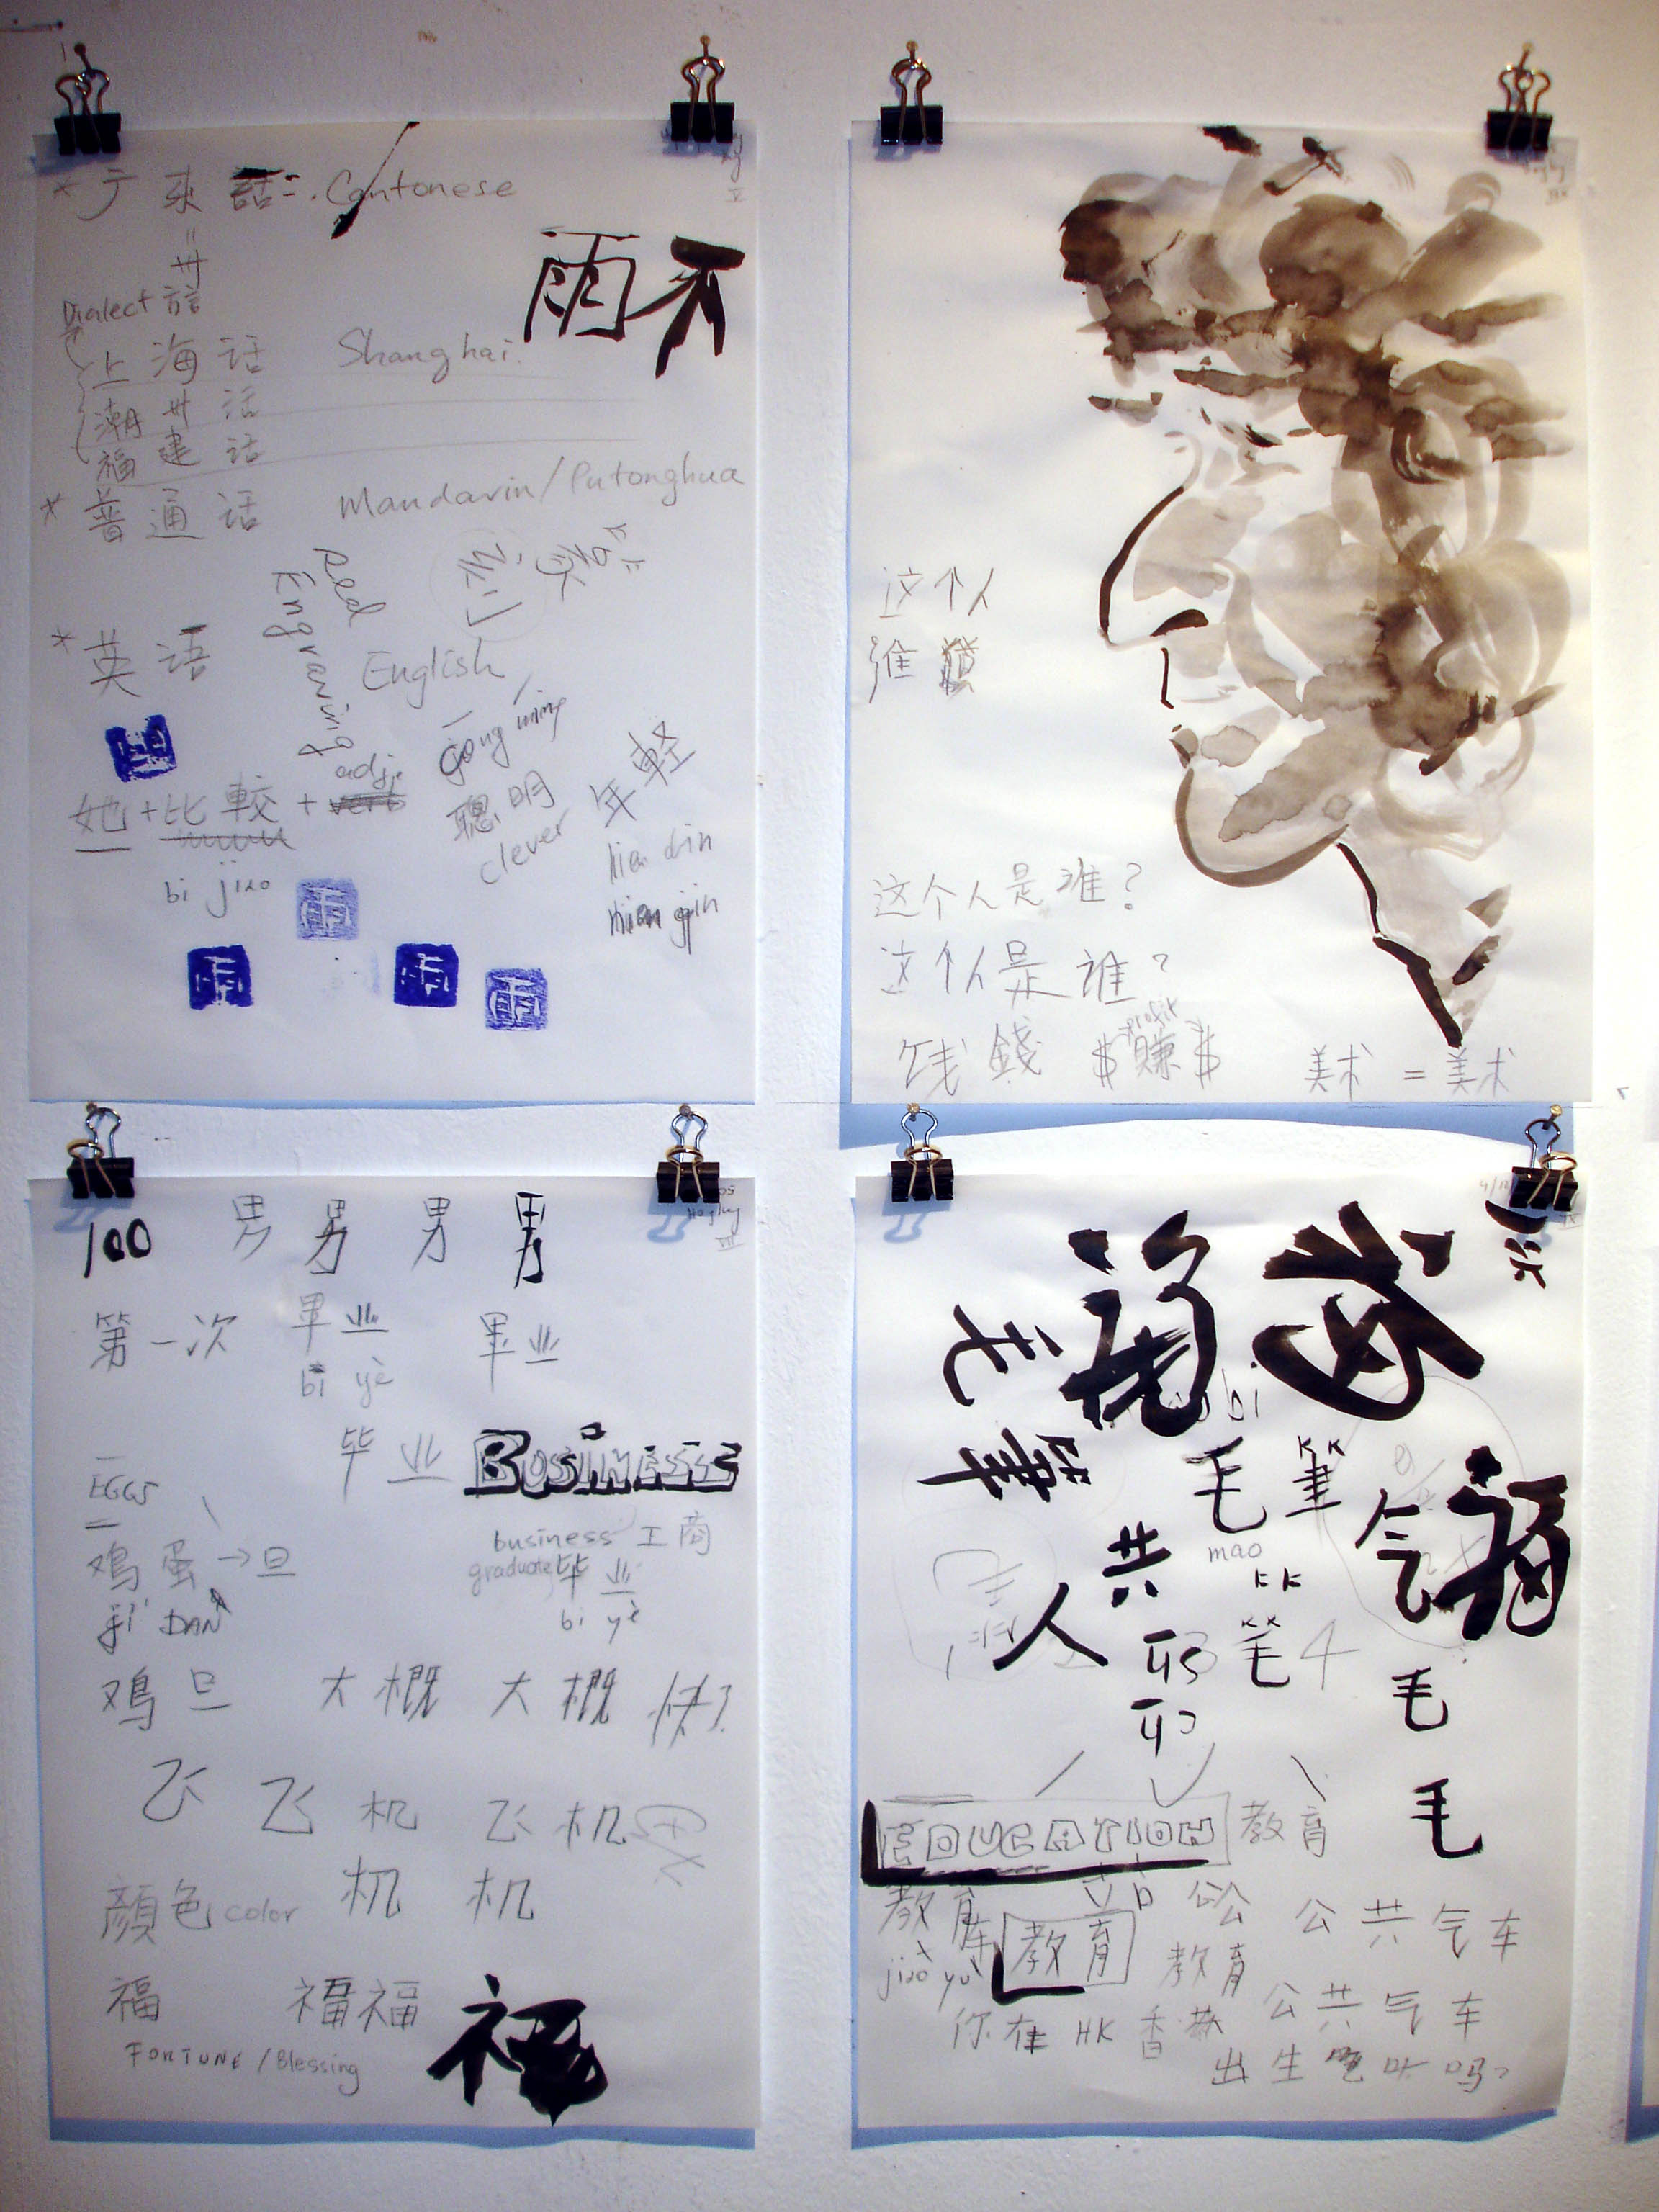 Cantonese
雨 不
Dialect 方言
上 海 话 Shanghai
潮 州 话
福 建 话
普 通 话 Mandarin/Putonghua
Seal
Engraving
英 语 English
adj.
她 + 比 較 +
bi jiao
聰 明
clever
年 輕
雨
这个人
这个人是谁?
这个人是谁?
profit
钱 錢 $ 賺 $ 美术 = 美术
100 男 男 男 男
第一次 畢业 畢业
bì yè
毕 业 BUSINESS
EGGS
business 工 商
鸡 蛋 → 旦 graduate 毕 业
jī DAN bì yè
鸡 旦 大 概 大 概
飞 飞 机 飞 机
机 机
顏色 color
福 福福 福
FORTUNE / Blessing
福
毛 筆
毛 筆
mao
气 福
共
人
笔
毛
毛
EDUCATION 教育
教育 公 共 气 车
jiào yù 教育 教育
公 共 气 车
你 在 HK 香 港
出 生 吗?